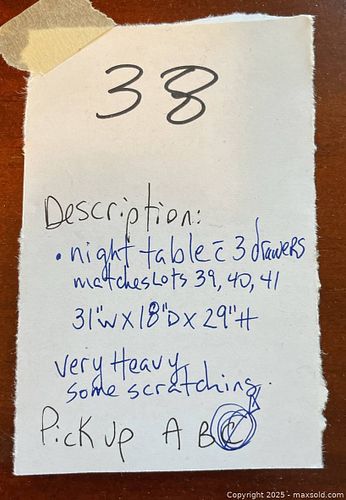 38
Description:
• night table c̄ 3 drawers
matches Lots 39, 40, 41
31"W X 18"D X 29"H
very Heavy
some scratching.
Pick Up A B C
Copyright 2025 - maxsold.com